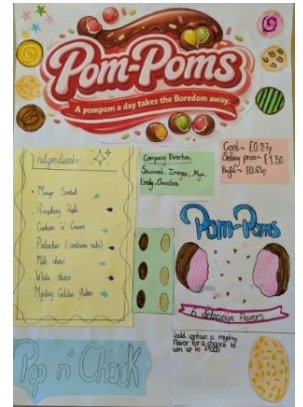 Pom-Poms
A pompom a day takes the Boredom away.
Ingredients
Mango Sorbet
Raspberry Ripple
Cookies n' Cream
Pistachio (contains nuts)
Milk choc
White choc
Mystery Golden flavour
Company Directors,
Savannah, Imogen, Mya,
Emily, Christina
Cost~ £0.87p
Selling price~ £1.50
Profit~ £0.63p
Pom-Poms
6 delicious flavors
Pop n' Chock
Could contain a mystery
flavor for a chance to
win up to £1000